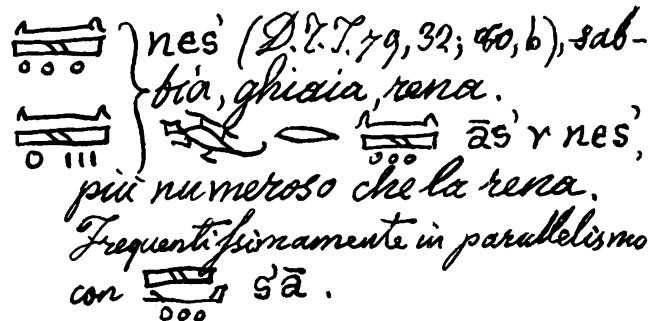 nes' (D.T.T. 79, 32; 80, b), sab-
bia, ghiaia, rena.
ās' r nes',
più numeroso che la rena.
Frequentissimamente in parallelismo
con s'ā.